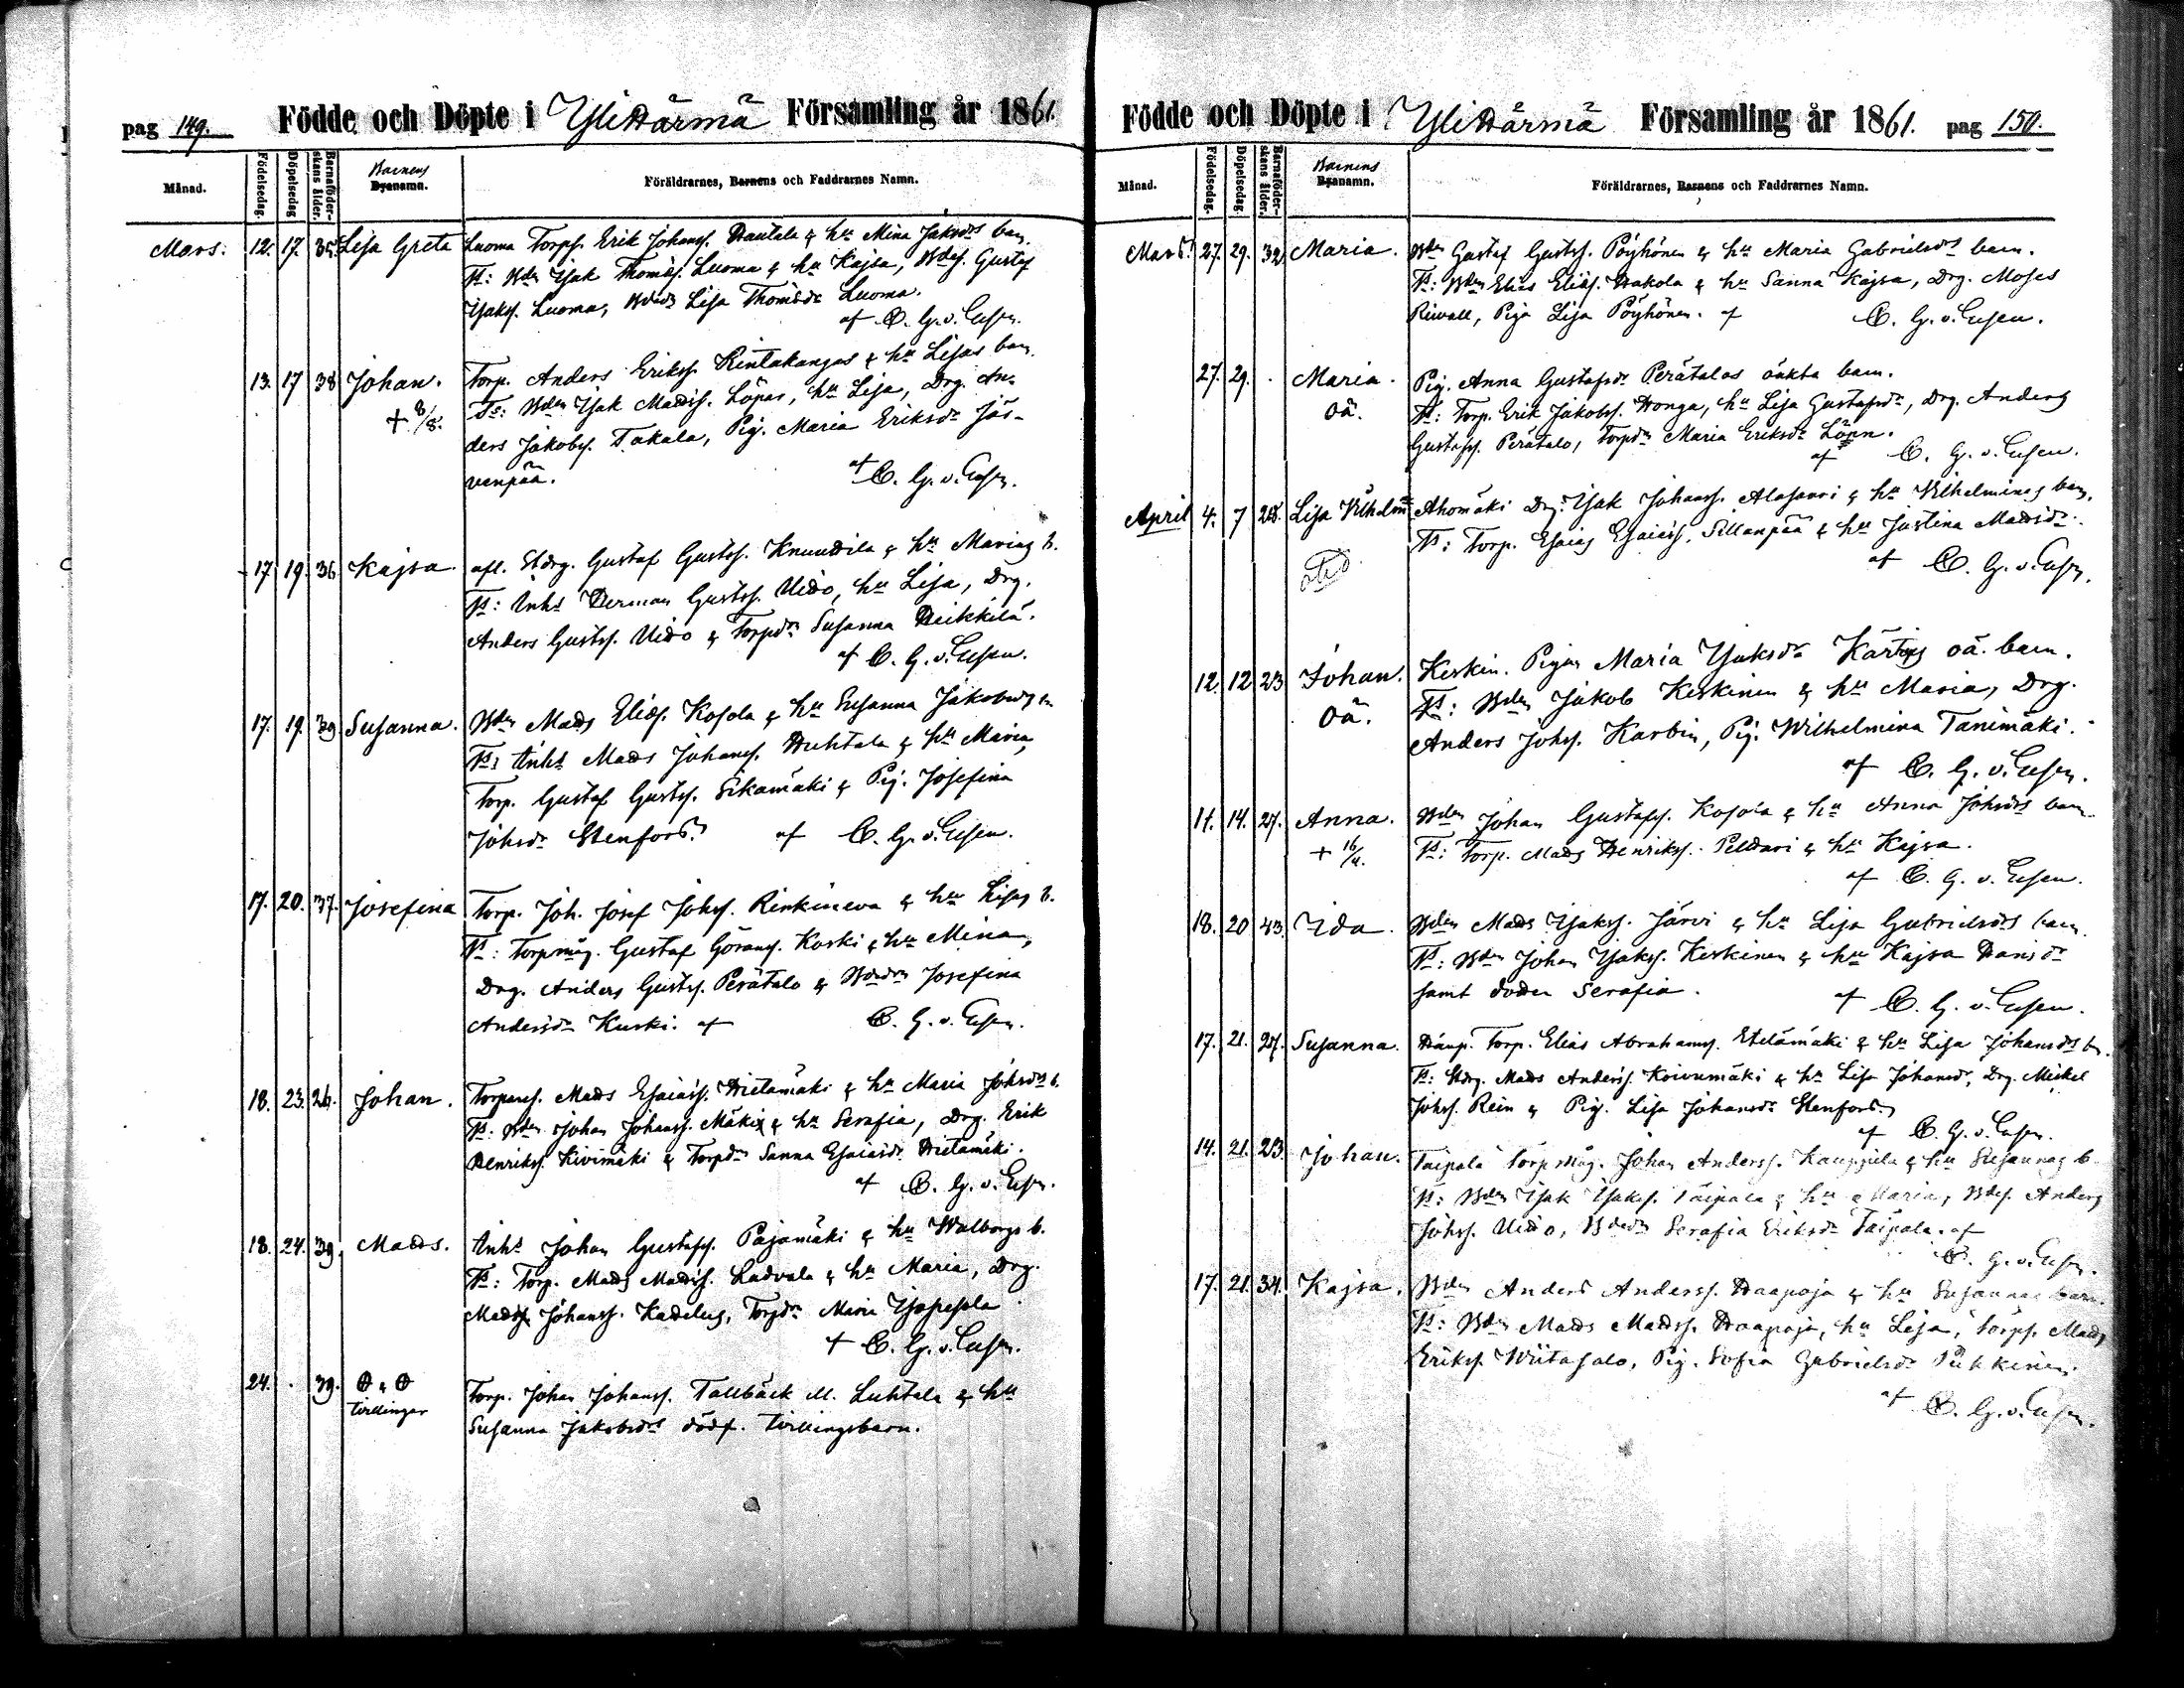 pag 149. Födde och Döpte i Ylihärmä Församling år 1861.
Månad. Födelsedag. Döpelsedag Barnaföder-skans ålder. Barnens Byanamn. Föräldrarnes, Barnens och Faddrarnes Namn.
Mars. 12. 17. 35. Lisa Greta Luoma Torps. Erik Johans. Hautala & hu Mina Jaksdrs barn.
Ts: Bdn Isak Thomas. Luoma & hu Kajsa, Bdes. Gustaf
Isaks. Luoma, Bdedr Lisa Thomasdr Luoma.
af C. G. v. Essen.
13. 17 38 Johan. Torp. Anders Erikss. Rintakangas & hu Lisas barn.
+ 8/8. Ts: Bdn Isak Madss. Löpas, hu Lisa, Drg. An-
ders Jakobs. Takala, Pig. Maria Eriksdr Jär-
venpää. af C. G. v. Essen.
17 19. 36 Kajsa. afl. Stdrg. Gustaf Gustfs. Knuuttila & hu Marias b.
Ts: Inhs Herman Gustfs. Uito, hu Lisa, Drg.
Anders Gustfs. Uito & Torpdr Susanna Heikkilä.
af C. G. v. Essen.
17. 19. 39. Susanna. Bdn Mads Elias. Kosola & hu Susanna Jakobsdrs
Ts: Inhs Mads Johans. Huhtala & hu Maria,
Torp. Gustaf Gustfs. Sikamäki & Pig. Josefina
Johsdr Stenfors. af C. G. v. Essen.
17. 20. 37. Josefina Torp. Joh. Josef Johss. Rinkineva & hu Lisas b.
Ts: Torpmåg. Gustaf Görans. Koski & hu Mina,
Drg. Anders Gustfs. Perätalo & Bdedr Josefina
Andersdr Kuski. af C. G. v. Essen.
18. 23. 26. Johan. Torpares. Mads Esaiass. Hietamäki & hu Maria Johsdrs b.
Ts: Bdn Johan Johanss. Mäki & hu Serafia, Drg. Erik
Henrikss. Kivimäki & Torpdr Sanna Esaiasdr Hietamäki.
af C. G. v. Essen.
18. 24. 39. Mads. Inhs Johan Gustafss. Pajamäki & hu Walborgs b.
Ts: Torp. Mads Madss. Ladvala & hu Maria, Drg.
Mads Johanss. Torpdr Maria
af C. G. v. Essen.
24. . 39. tvillingar Torp. Johan Johanss. Tallbäck l. Luhtala & hu
Susanna Jakobsdrs dödf. tvillingsbarn.
Födde och Döpte i Ylihärmä Församling år 1861. pag 150.
Månad. Födelsedag. Döpelsedag Barnaföder-skans ålder. Barnens Byanamn. Föräldrarnes, Barnens och Faddrarnes Namn.
Mars. 27. 29. 32 Maria. Bdn Gustaf Gustfs. Pöyhönen & hu Maria Gabrielsdrs barn.
Ts: Bdn Elias Elias. Hakola & hu Sanna Kajsa, Drg. Moses
Riivall, Piga Lisa Pöyhönen. af C. G. v. Essen.
27. 29. . Maria. Pig. Anna Gustafsdr Perätalos oäkta barn.
oä. Ts: Torp. Erik Jakobss. Honga, hu Lisa Gustafsdr, Drg. Anders
Gustafss. Perätalo, Torpdr Maria Eriksdr Lönn.
af C. G. v. Essen.
April 4. 7 28. Lisa Vilhelm Ahomäki Drg. Isak Johanss. Alasaari & hu Vilhelminas barn.
Ts: Torp. Esaias Esaiass. Sillanpää & hu Justina Madsdr.
af C. G. v. Essen.
12. 12 23 Johan. Keskin. Pigan Maria Isaksdr oä. barn.
oä. Ts: Bdn Jakob Keskinen & hu Maria, Drg.
Anders Johss. Karbin, Pig. Wilhelmina Tanimäki.
af C. G. v. Essen.
11. 14. 27. Anna. Bdn Johan Gustafss. Kosola & hu Anna Johsdrs barn.
+ 16/4. Ts: Torp. Mads Henrikss. Peldari & hu Kajsa.
af C. G. v. Essen.
18. 20 43. Ida. Bdn Mads Isakss. Järvi & hu Lisa Gabrielsdrs barn.
Ts: Bdn Johan Isakss. Keskinen & hu Kajsa Danisdr
samt dotter Serafia. af C. G. v. Essen.
17. 21. 27. Susanna. Haap. Torp. Elias Abrahamss. Etelämäki & hu Lisa Johansdrs b.
Ts: Stdrg. Mads Anderss. Koivumäki & hu Lisa Johansdr, Drg. Mickel
Johss. Rein & Pig. Lisa Johansdr Stenfors.
af C. G. v. Essen.
14. 21. 23. Johan. Taipala Torpmåg. Johan Anderss. Kauppila & hu Susannas b.
Ts: Bdn Isak Isakss. Taipala & hu Maria, Bdes. Anders
Johss. Uito, Bdedr Serafia Eriksdr Taipala. af
C. G. v. Essen.
17. 21. 34. Kajsa. Bdn Anders Anderss. Haapoja & hu Susannas barn.
Ts: Bdn Mads Madss. Haapoja, hu Lisa, Torps. Mads
Erikss. Wiitasalo, Pig. Sofia Gabrielsdr Puhkinen.
af C. G. v. Essen.